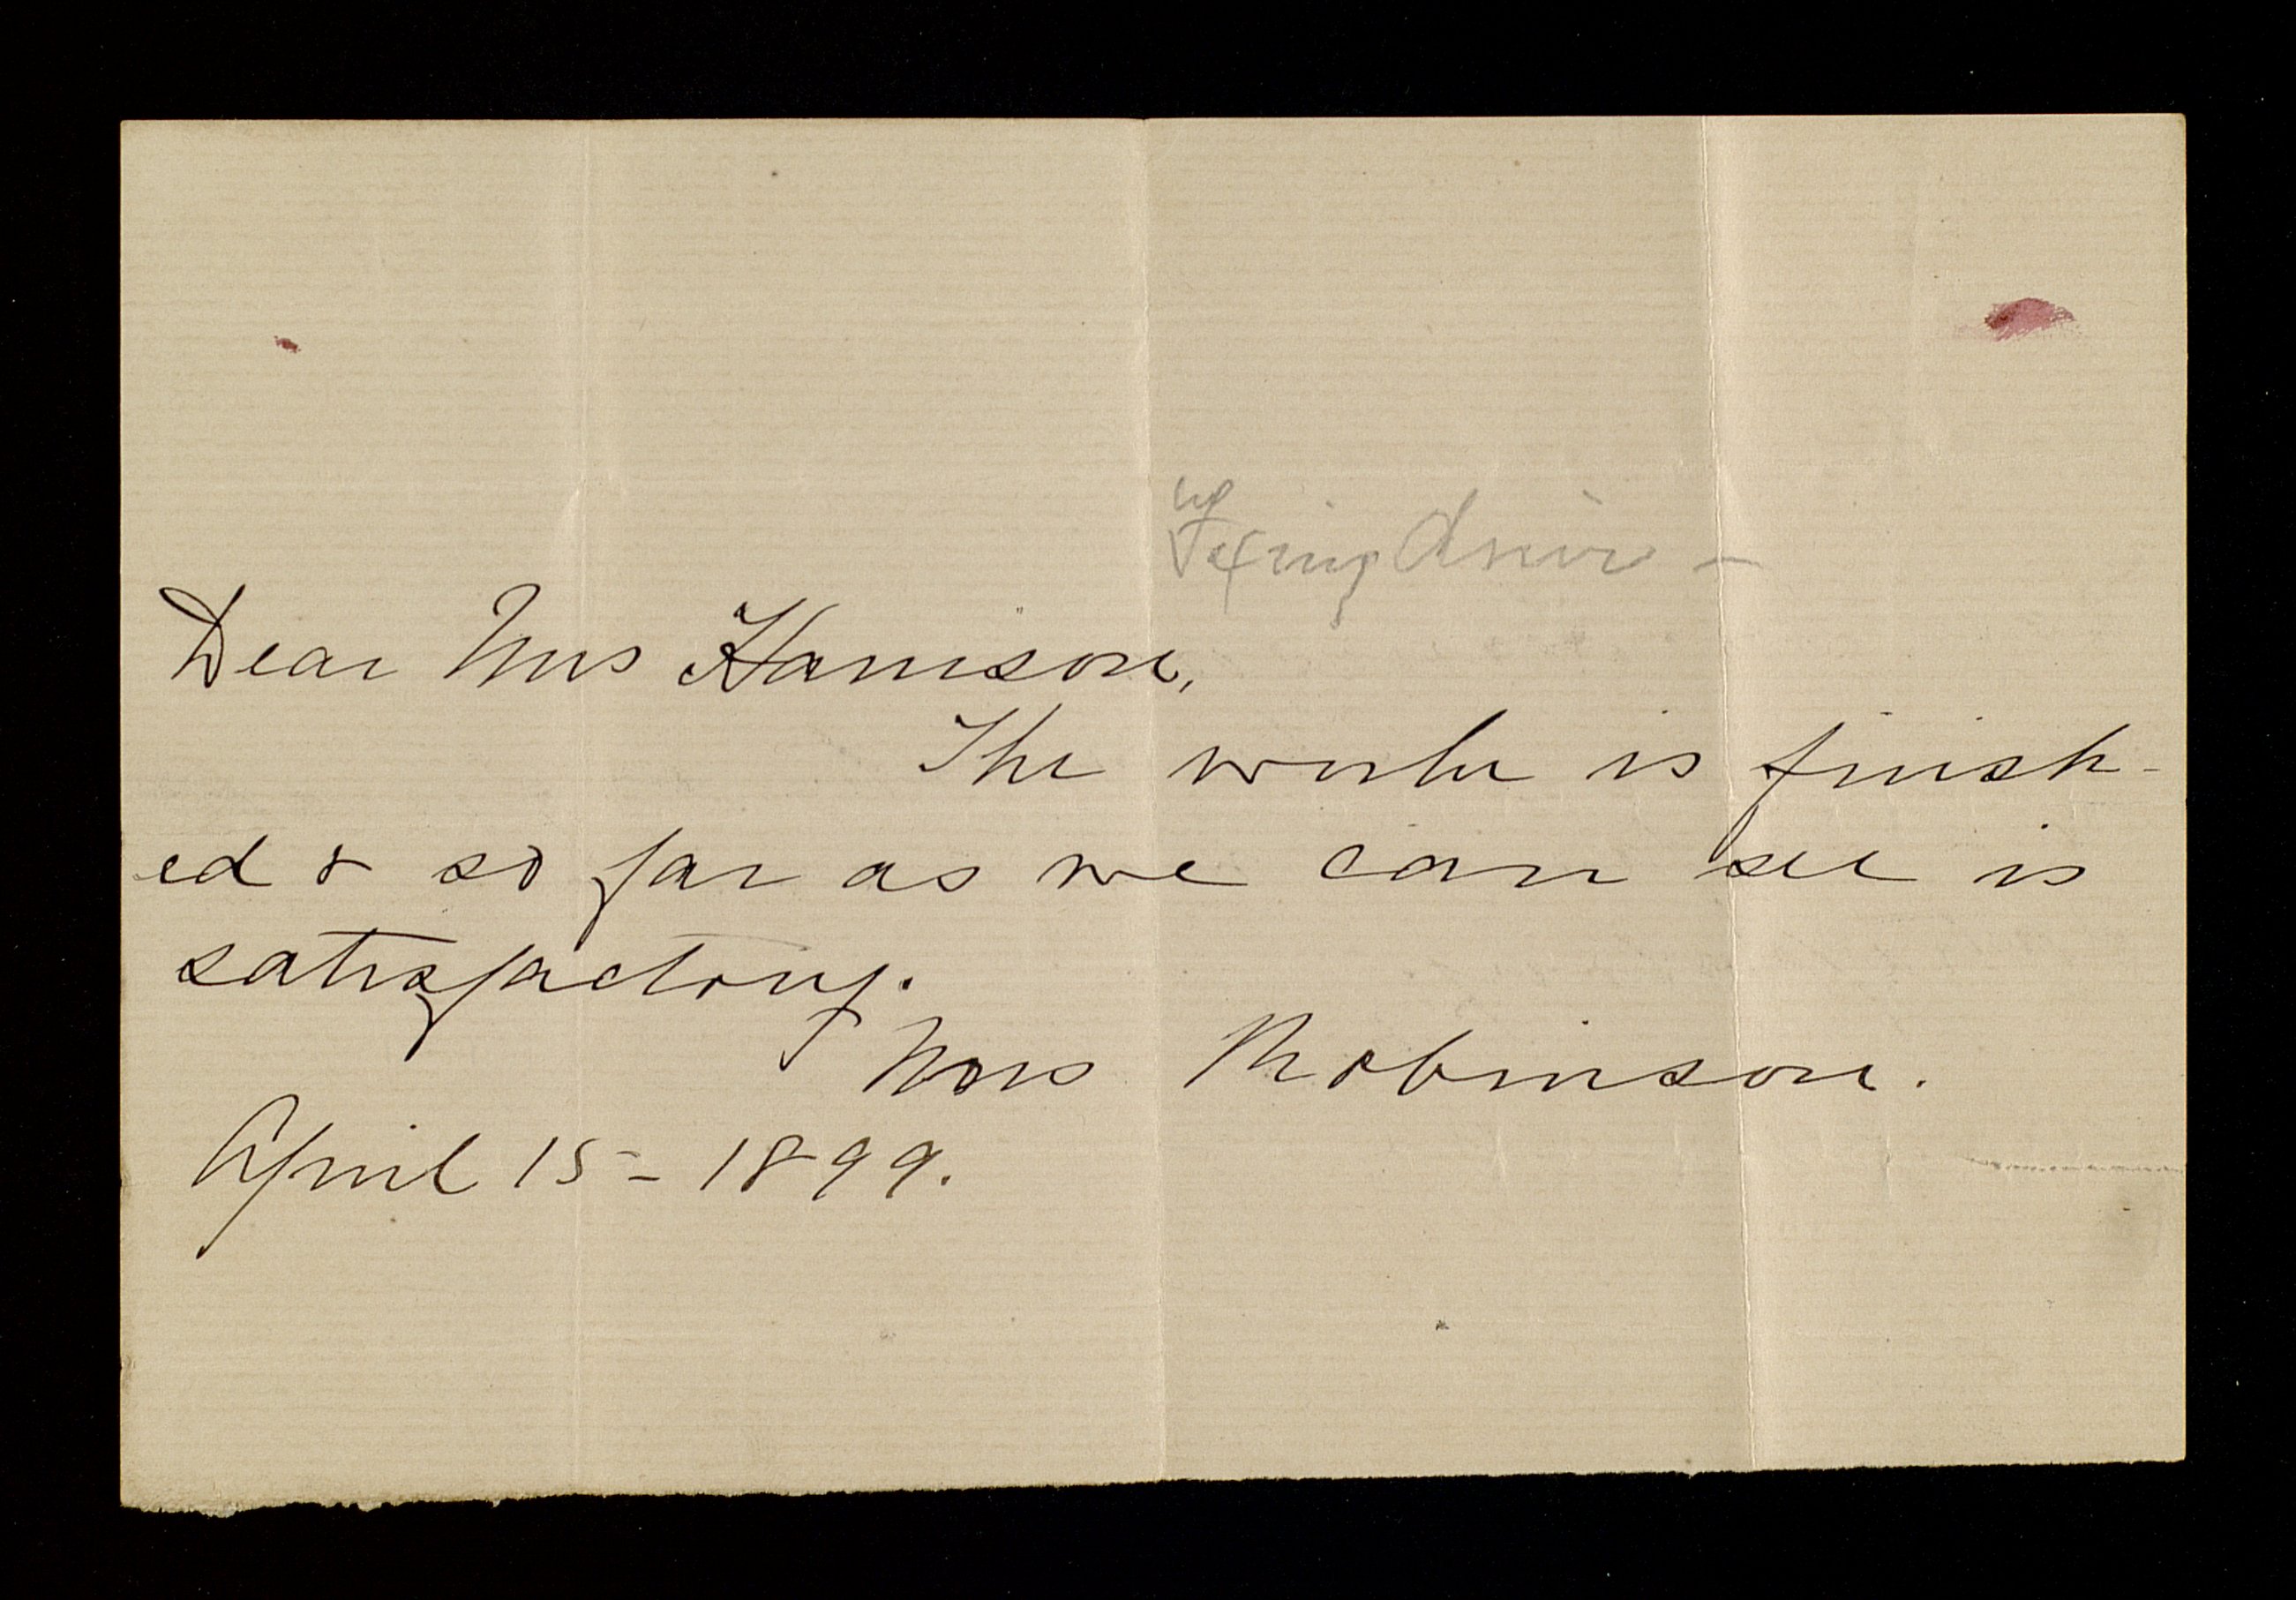 Fixing door -
Dear Mrs Harrison,
The work is finish-
ed & so far as we can see is
satisfactory.
Mrs Robinson.
April 15 - 1899.